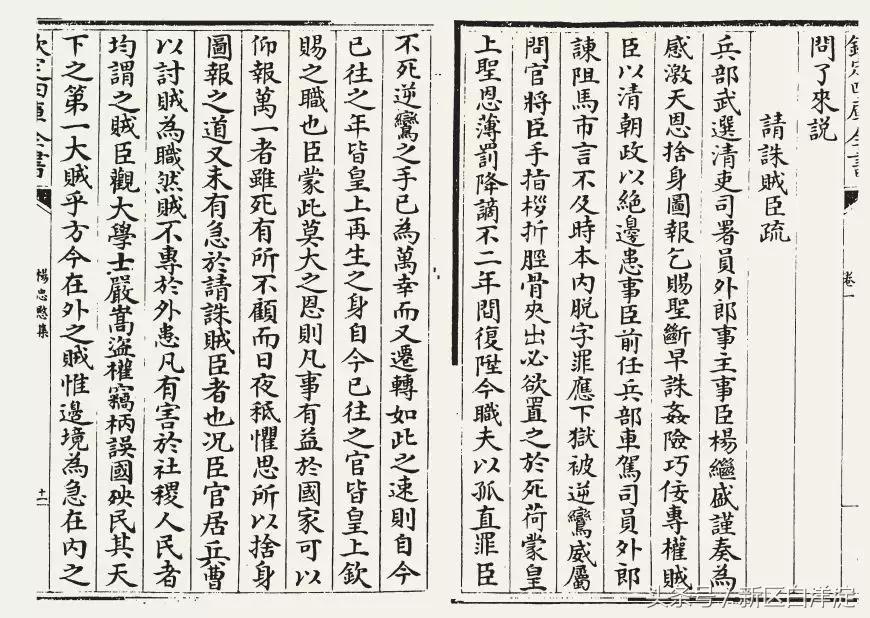 欽定四庫全書
卷一
問了來説
請誅賊臣疏
兵部武選清吏司署員外郎事主事臣楊繼盛謹奏為
感激天恩捨身圖報乞賜聖斷早誅姦險巧佞專權賊
臣以清朝政以絶邊患事臣前任兵部車駕司員外郎
諫阻馬市言不及時本內脱字罪應下獄被逆鸞威屬
問官將臣手指桚折脛骨夾出必欲置之於死荷蒙皇
上聖恩薄罰降謫不二年間復陞今職夫以孤直罪臣
不死逆鸞之手已為萬幸而又遷轉如此之速則自今
已往之年皆皇上再生之身自今已往之官皆皇上欽
賜之職也臣蒙此莫大之恩則凡事有益於國家可以
仰報萬一者雖死有所不顧而日夜秪懼思所以捨身
圖報之道又未有急於請誅賊臣者也况臣官居兵曹
以討賊為職然賊不專於外患凡有害於社稷人民者
均謂之賊臣觀大學士嚴嵩盜權竊柄誤國殃民其天
下之第一大賊乎方今在外之賊惟邊境為急在內之
欽定四庫全書
楊忠愍集
头条号/新区白洋淀